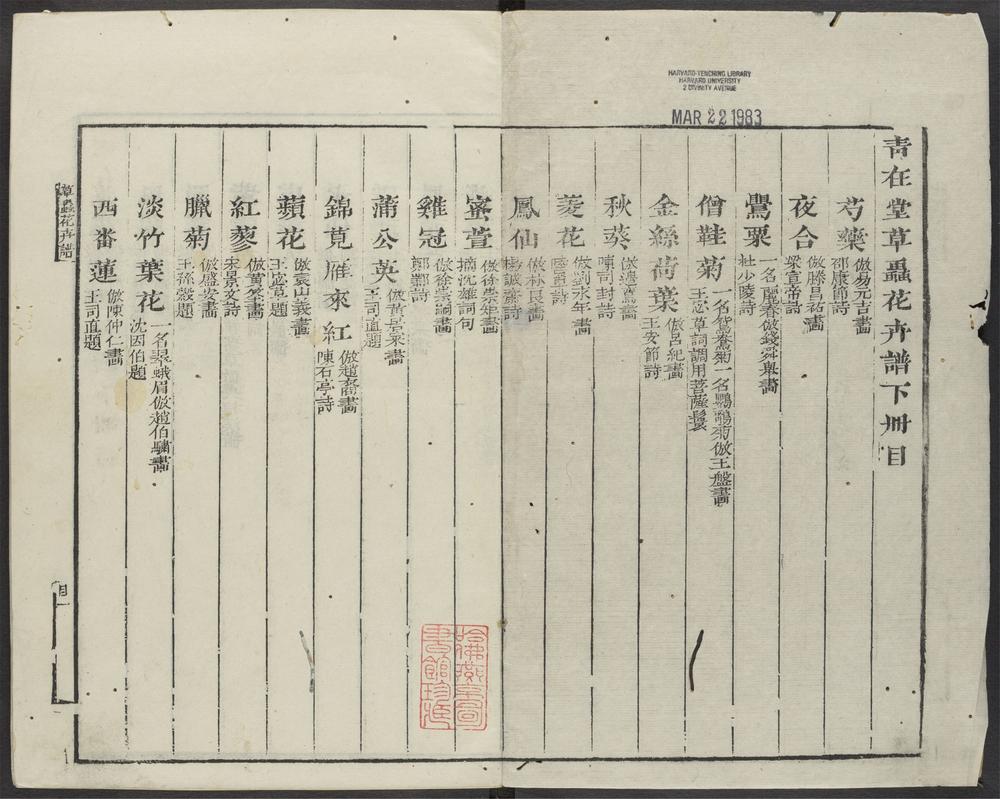 HARVARD-YENCHING LIBRARY
HARVARD UNIVERSITY
2 DIVINITY AVENUE
MAR 22 1983
青在堂草蟲花卉譜下冊目
芍藥 倣易元吉畫 邵康節詩
夜合 倣滕昌祐畫 梁宣帝詩
罌粟 一名麗春倣錢舜舉畫 杜少陵詩
僧鞋菊 一名鴛鴦菊一名鸚鵡菊倣王盤畫 王忍草詞調用菩薩鬘
金絲荷葉 倣呂紀畫 王安節詩
秋葵 倣邊鸞畫 陳司封詩
菱花 倣劉永年畫 詩
鳳仙 倣林良畫 楊誠齋詩
蜜萱 倣徐崇矩畫 摘沈雄詞句
雞冠 倣徐崇嗣畫 鄭鄤詩
蒲公英 倣黃居寀畫 王司直題
錦莧雁來紅 倣趙裔畫 陳石亭詩
蘋花 倣袁山義畫 王宓草題
紅蓼 倣黃筌畫 宋景文詩
臘菊 倣盛安畫 王孫縠題
淡竹葉花 一名翠蛾眉倣趙伯驌畫 沈因伯題
西番蓮 倣陳仲仁畫 王司直題
草蟲花卉譜
目一
哈佛燕京圖
書館珍藏